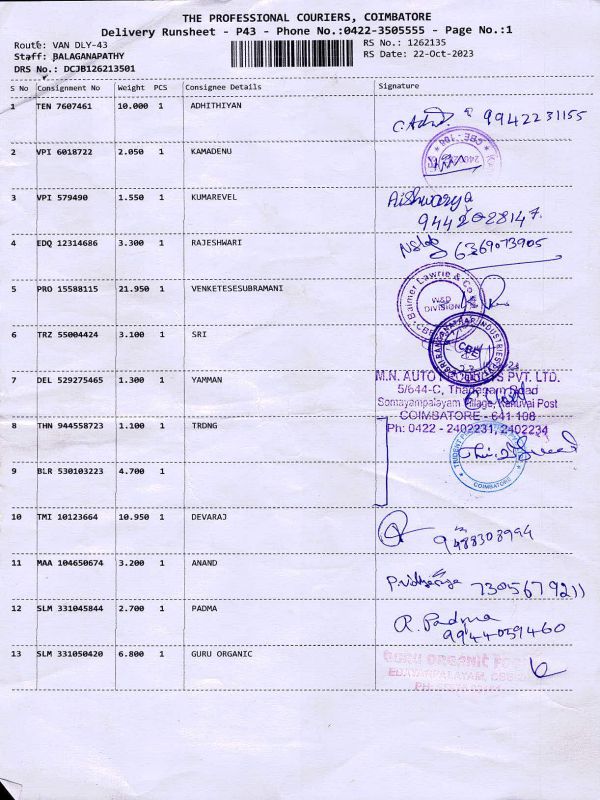 THE PROFESSIONAL COURIERS, COIMBATORE
Delivery Runsheet - P43 - Phone No.:0422-3505555 - Page No.:1
Route: VAN DLY-43 RS No.: 1262135
Staff: BALAGANAPATHY RS Date: 22-Oct-2023
DRS No.: DCJB126213501
S No Consignment No Weight PCS Consignee Details Signature
1 TEN 7607461 10.000 1 ADHITHIYAN 9942231155
2 VPI 6018722 2.050 1 KAMADENU
3 VPI 579490 1.550 1 KUMAREVEL Aishwarya
4 EDQ 12314686 3.300 1 RAJESHWARI 6369073905
5 PRO 15588115 21.950 1 VENKETESESUBRAMANI Balmer Lawrie & Co W&D DIVISION CBE
6 TRZ 55004424 3.100 1 SRI CBE
7 DEL 529275465 1.300 1 YAMMAN
M.N. AUTO PVT. LTD.
5/644-C, Thadagam Road
Somayampalayam Village, Kanuvai Post
COIMBATORE - 641 108
Ph: 0422 - 2402231, 2402234
8 THN 944558723 1.100 1 TRDNG
TRIDENT COIMBATORE
9 BLR 530103223 4.700 1
10 TMI 10123664 10.950 1 DEVARAJ 9488308994
11 MAA 104650674 3.200 1 ANAND 7305679211
12 SLM 331045844 2.700 1 PADMA R. Padma
9944059460
13 SLM 331050420 6.800 1 GURU ORGANIC GURU ORGANIC